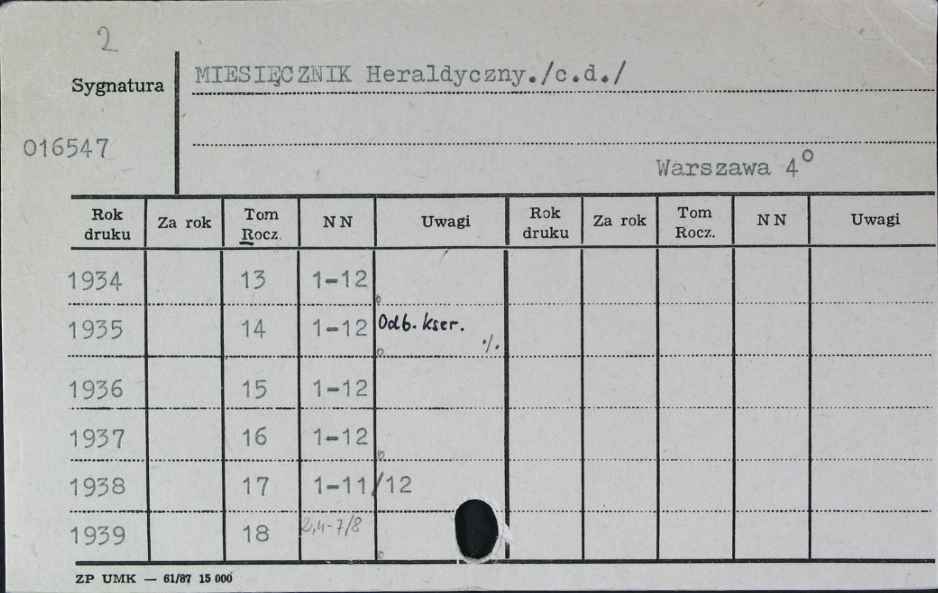 2
Sygnatura MIESIĘCZNIK Heraldyczny./c.d./
016547
Warszawa 4°
Rok druku Za rok Tom Rocz. NN Uwagi Rok druku Za rok Tom Rocz. NN Uwagi
1934 13 1-12
1935 14 1-12 Odb. kser. ./.
1936 15 1-12
1937 16 1-12
1938 17 1-11/12
1939 18 2,4-7/8
ZP UMK — 61/87 15 000